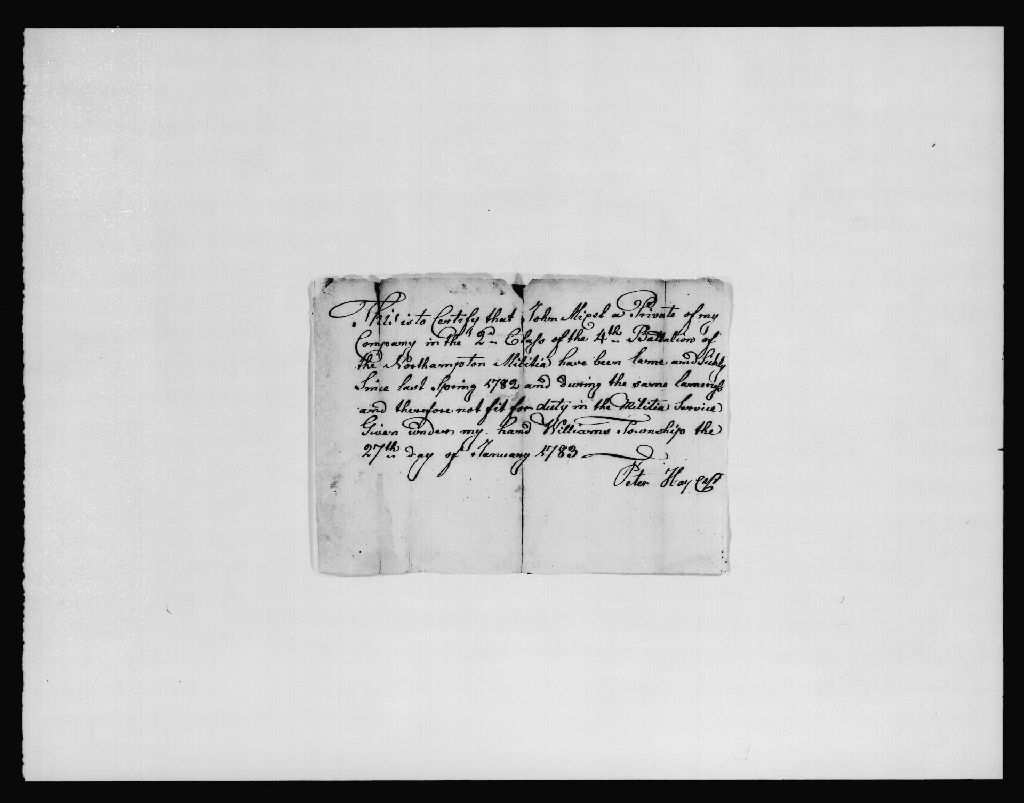 This is to Certify that John Mipel a Private of my
Company in the 2d Class of the 4th Battalion of
the Northampton Militia have been lame and Sickly
Since last Spring 1782 and during the same lameness
and therefore not fit for duty in the Militia Service
Given under my hand Williams Township the
27th day of January 1783
Peter Hay Capt